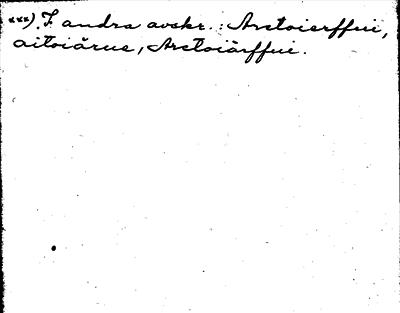 xxx). I andra avskr.: Arstoierffui,
aitoiärue, Arstoiärffui.